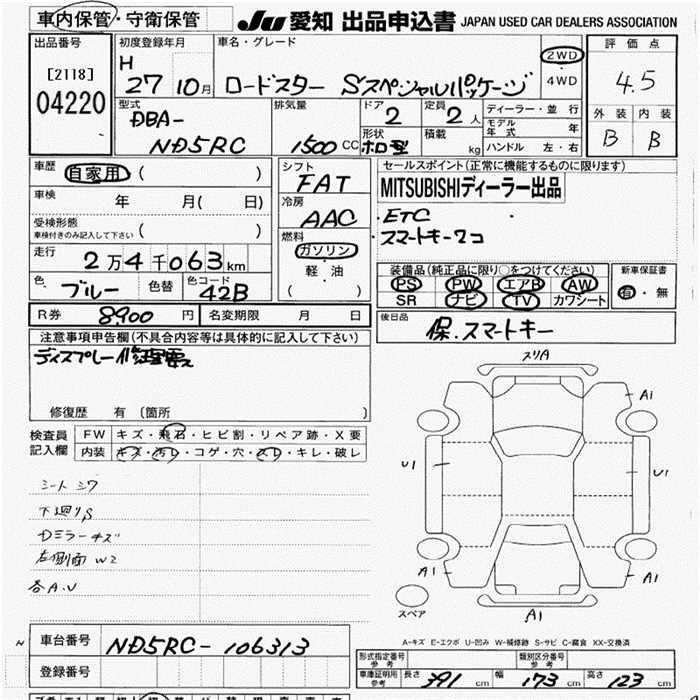 車内保管・守衛保管 JU 愛知 出品申込書 JAPAN USED CAR DEALERS ASSOCIATION
出品番号
[2118]
04220
初度登録年月
H 27 10月
車名・グレード
ロードスター Sスペシャルパッケージ
2WD
4WD
評価点
4.5
外装 内装
B B
型式
DBA-
ND5RC
排気量
1500 CC
ドア
2
定員
2人
形状
ホロ型
積載
kg
ディーラー・並行
モデル年式 年
ハンドル 左・右
車歴
自家用 ( )
車検 年 月( 日)
受検形態
車検付きのみ記入して下さい ( )
走行
2万4千063km
色
ブルー
色替
色コード
42B
シフト
FAT
冷房
AAC
燃料
ガソリン
軽・油
( )
セールスポイント(正常に機能するものに限ります)
MITSUBISHIディーラー出品
・ETC
・スマートキー2コ
装備品(純正品に限り○をつけてください)
PS PW エアB AW
SR ナビ TV カワシート
新車保証書
有・無
R券 8900 円
名変期限 月 日
後日品
保.スマートキー
注意事項申告欄(不具合内容等は具体的に記入して下さい)
ディスプレー修理要
修復歴 有 (箇所 )
検査員
記入欄
FW キズ・飛石・ヒビ割・リペア跡・X要
内装 キズ・汚レ・コゲ・穴・スレ・キレ・破レ
シートシワ
下廻りS
Dミラーキズ
右側面 W2
各A.U
スリA
A1
A1
U1
U1
A1
A1
A1
スペア
A-キズ E-エクボ U-凹み W-補修跡 S-サビ C-腐食 XX-交換済
車台番号 ND5RC-106313
登録番号
形式指定番号
参考
類別区分番号
参考
車庫証明用
参考
長さ 391 cm 幅 173 cm 高さ 123 cm